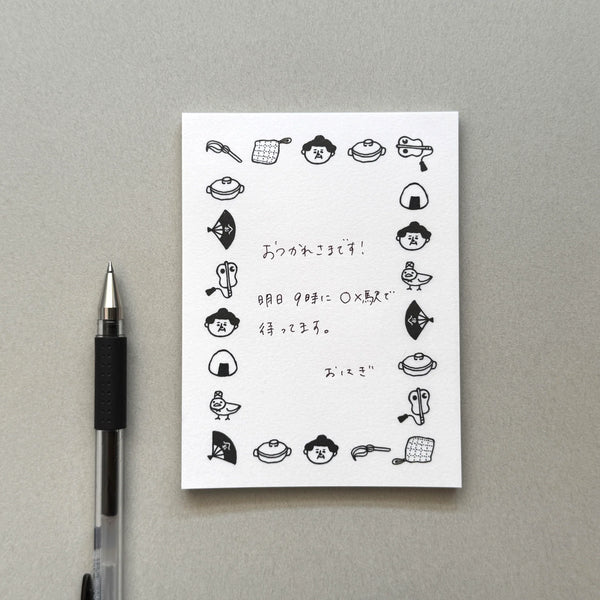 おつかれさまです!
明日 9時に ○×駅で
待ってます。
おはぎ